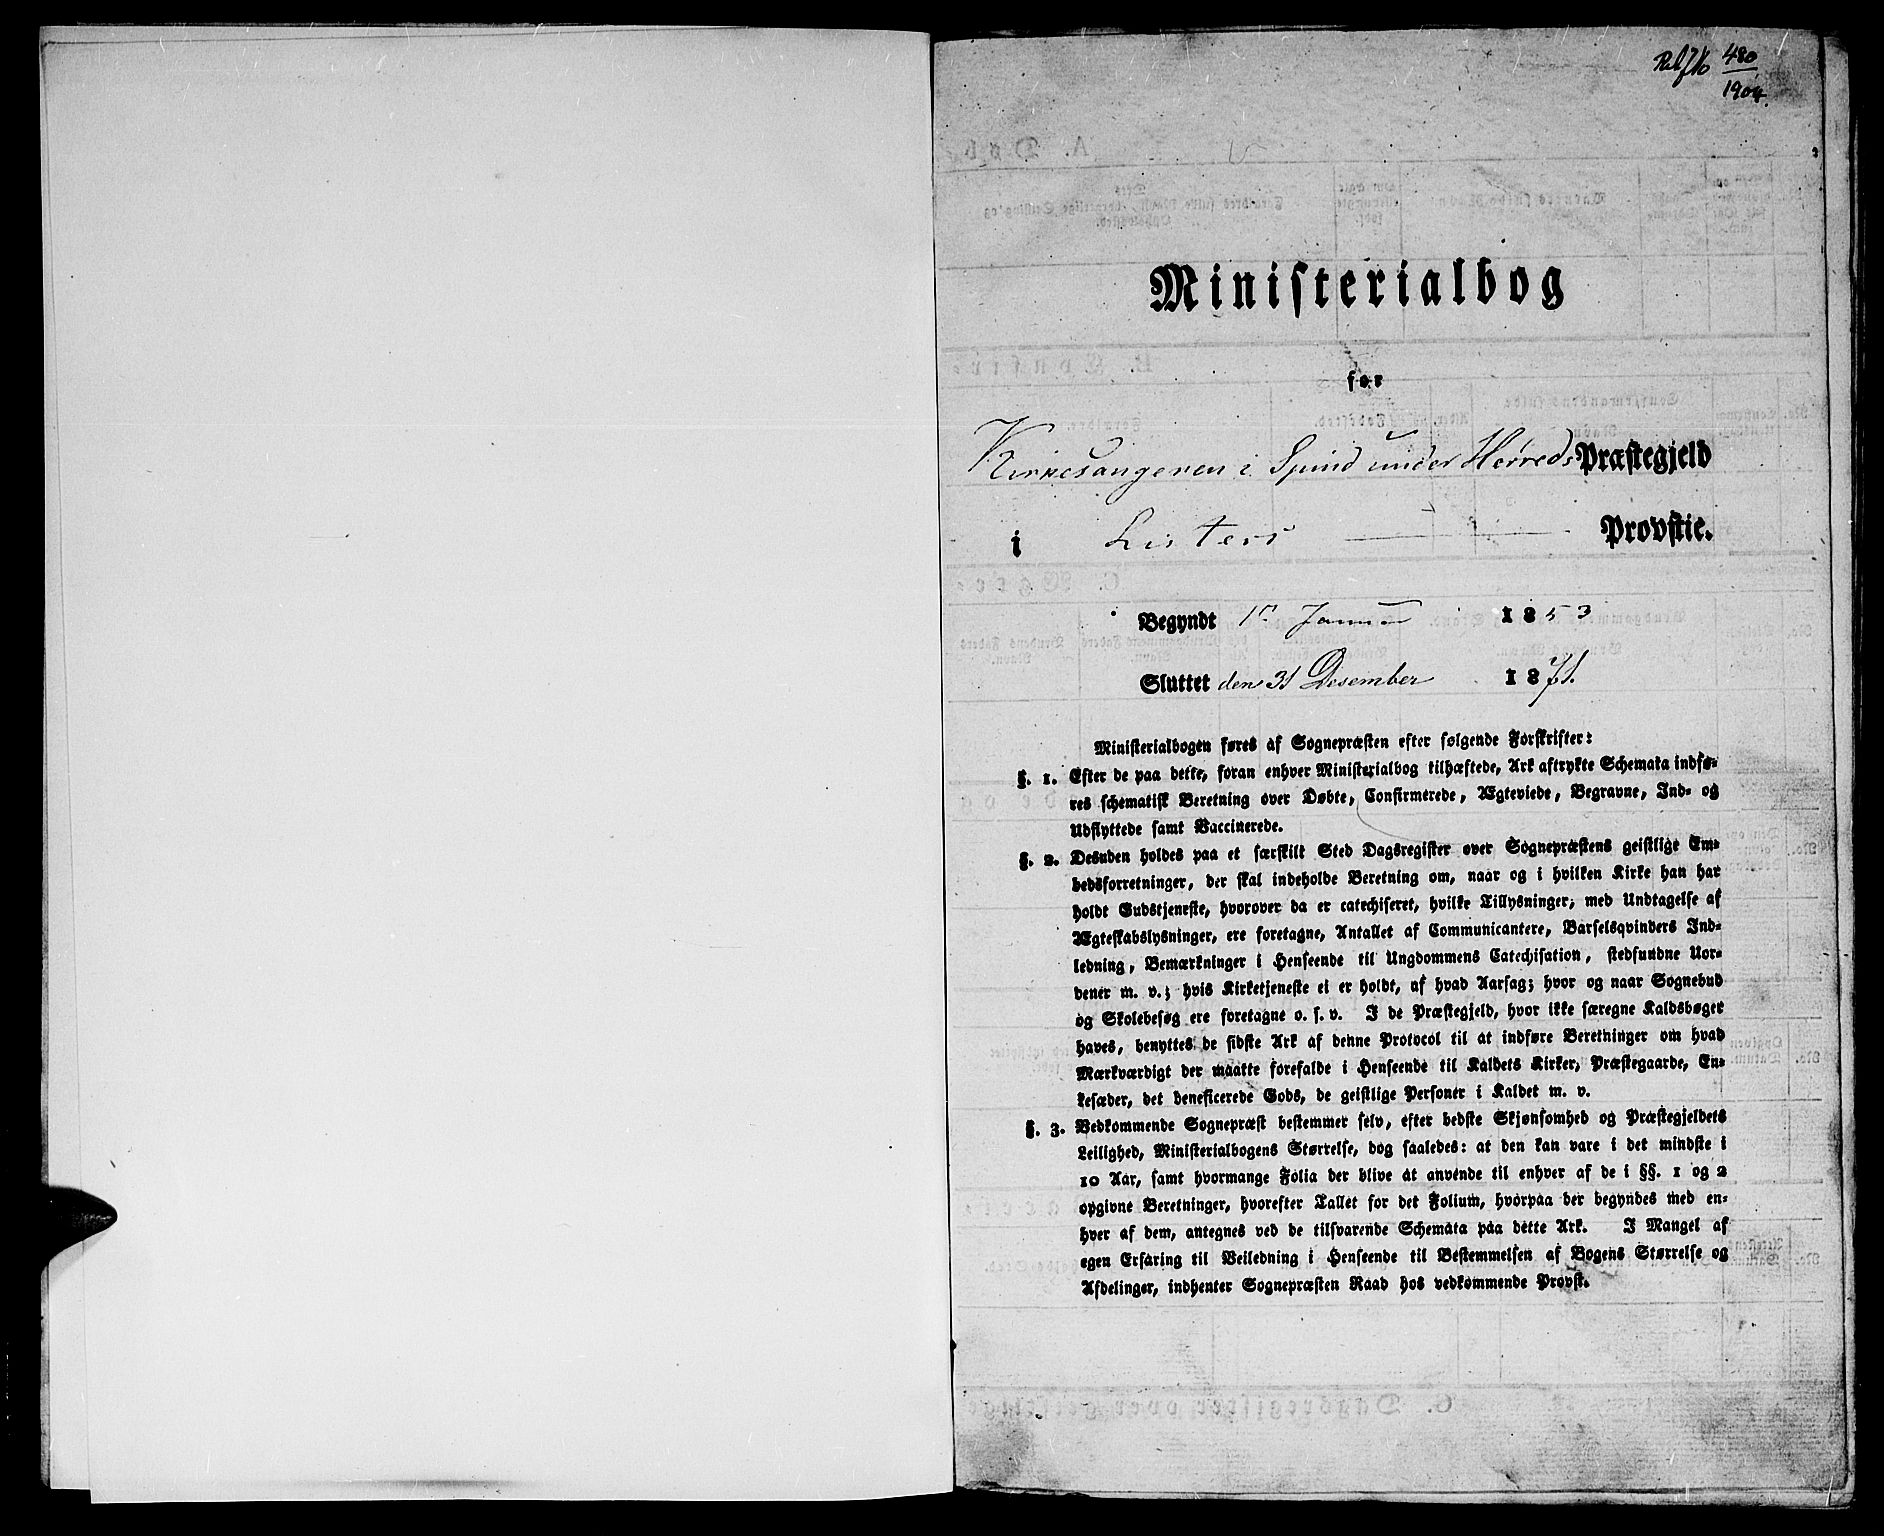 480
1904.
Ministerialbog
for
Kirkesangeren i Spind under Herreds Præstegjeld
i Listers Provstie.
Begyndt 1ste Januar 1853
Sluttet den 31 Desember 1871.
Ministerialbogen føres af Sognepræsten efter følgende Forskrifter:
§. 1. Efter de paa dette, foran enhver Ministerialbog tilhæftede, Ark aftrykte Schemata indfø-
res schematisk Beretning over Døbte, Confirmerede, Ægteviede, Begravne, Ind- og
Udflyttede samt Vaccinerede.
§. 2. Desuden holdes paa et særskilt Sted Dagsregister over Sognepræstens geistlige Em-
bedsforretninger, der skal indeholde Beretning om, naar og i hvilken Kirke han har
holdt Gudstjeneste, hvorover da er catechiseret, hvilke Tillysninger, med Undtagelse af
Ægteskabslysninger, ere foretagne, Antallet af Communicantere, Barselsqvinders Ind-
ledning, Bemærkninger i Henseende til Ungdommens Catechisation, stedfundne Uor-
dener m. v.; hvis Kirketjeneste ei er holdt, af hvad Aarsag; hvor og naar Sognebud
og Skolebesøg ere foretagne o. s. v. I de Præstegjeld, hvor ikke særegne Kaldsbøger
haves, benyttes de sidste Ark af denne Protocol til at indføre Beretninger om hvad
Mærkværdigt der maatte forefalde i Henseende til Kaldets Kirker, Præstegaarde, En-
kesæder, det beneficerede Gods, de geistlige Personer i Kaldet m. v.
§. 3. Vedkommende Sognepræst bestemmer selv, efter bedste Skjønsomhed og Præstegjeldets
Leilighed, Ministerialbogens Størrelse, dog saaledes: at den kan vare i det mindste i
10 Aar, samt hvormange Folia der blive at anvende til enhver af de i §§. 1 og 2
opgivne Beretninger, hvorefter Tallet for det Folium, hvorpaa der begyndes med en-
hver af dem, antegnes ved de tilsvarende Schemata paa dette Ark. I Mangel af
egen Erfaring til Veiledning i Henseende til Bestemmelsen af Bogens Størrelse og
Afdelinger, indhenter Sognepræsten Raad hos vedkommende Provst.